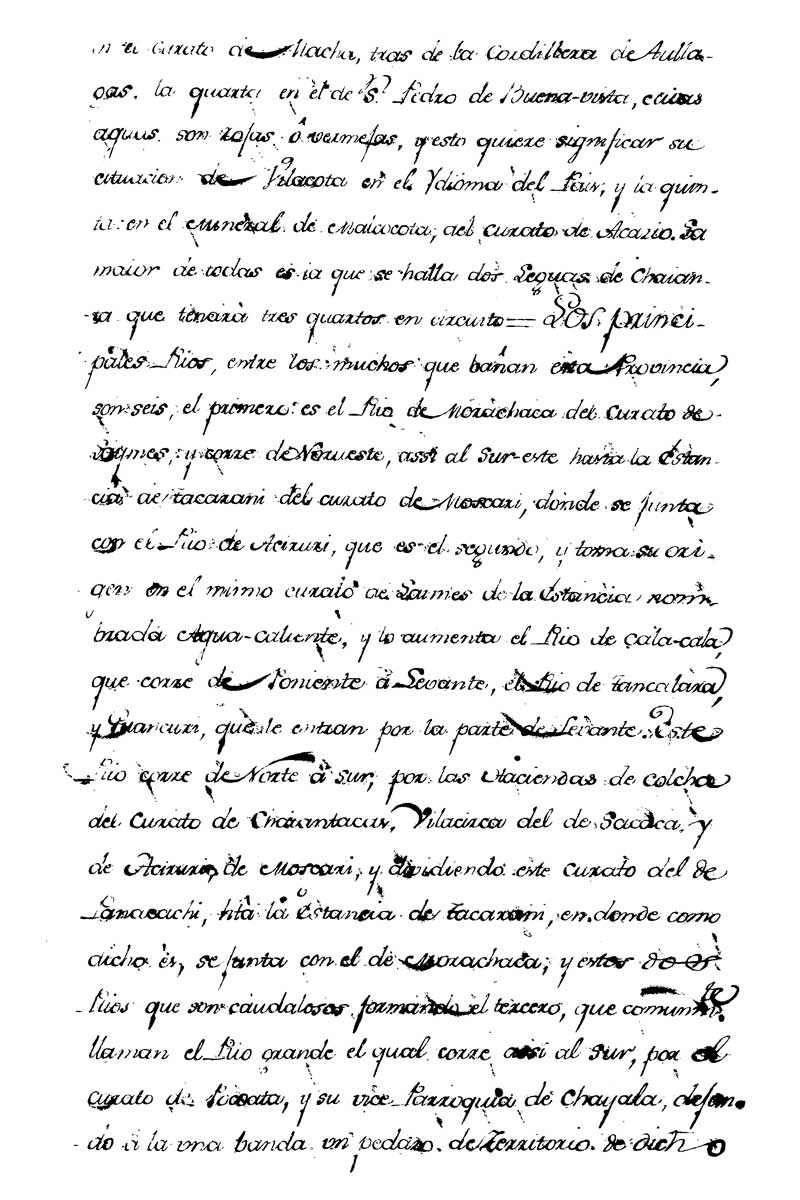 en el Curato de Macha, tras de la Cordillera de Aulla-
gas. la quarta en el de Sn. Pedro de Buena-vista, cuias
aguas son rojas ô vermejas, y esto quiere significar su
cituacion de Vilacota en el Ydioma del Pais; y la quin-
ta: en el Mineral de Malcocota, del curato de Acazio. La
maior de todas es la que se halla dos Leguas de Chaian-
ta que tendrá tres quartos en circuito = Los princi-
pales Rios, entre los muchos que bañan esta Provincia,
son seis, el primero: es el Rio de Morachaca del Curato de
Laymes, y corre de Norueste, assi al Sur-este hasta la Estan-
cia de tacarani del curato de Moscari, donde se junta
con el Rio de Aciruri, que es el segundo, y toma su ori-
gen en el mimo curato de Laimes de la Estancia nom-
brada Agua-caliente, y lo aumenta el Rio de cala-cala,
que corre de Poniente â Levante, el Rio de tancalara,
y Guancuri, que le entran por la parte de Levante. Este
Rio corre de Norte â Sur, por las Haciendas de Colcha
del Curato de Chaiantacas, Vilacirca del de Sacaca, y
de Aciruri de Moscari, y dividiendo este Curato del de
Panacachi, hta la Estancia de tacarani, en donde como
dicho es, se junta con el de Morachaca; y estos dos
Rios que son caudalosos formando el tercero, que comunmte.
llaman el Rio grande el qual corre assi al Sur, por el
curato de Pocoata, y su vice Parroquia de Chayala, dejan-
do â la una banda un pedazo de Territorio de dicho